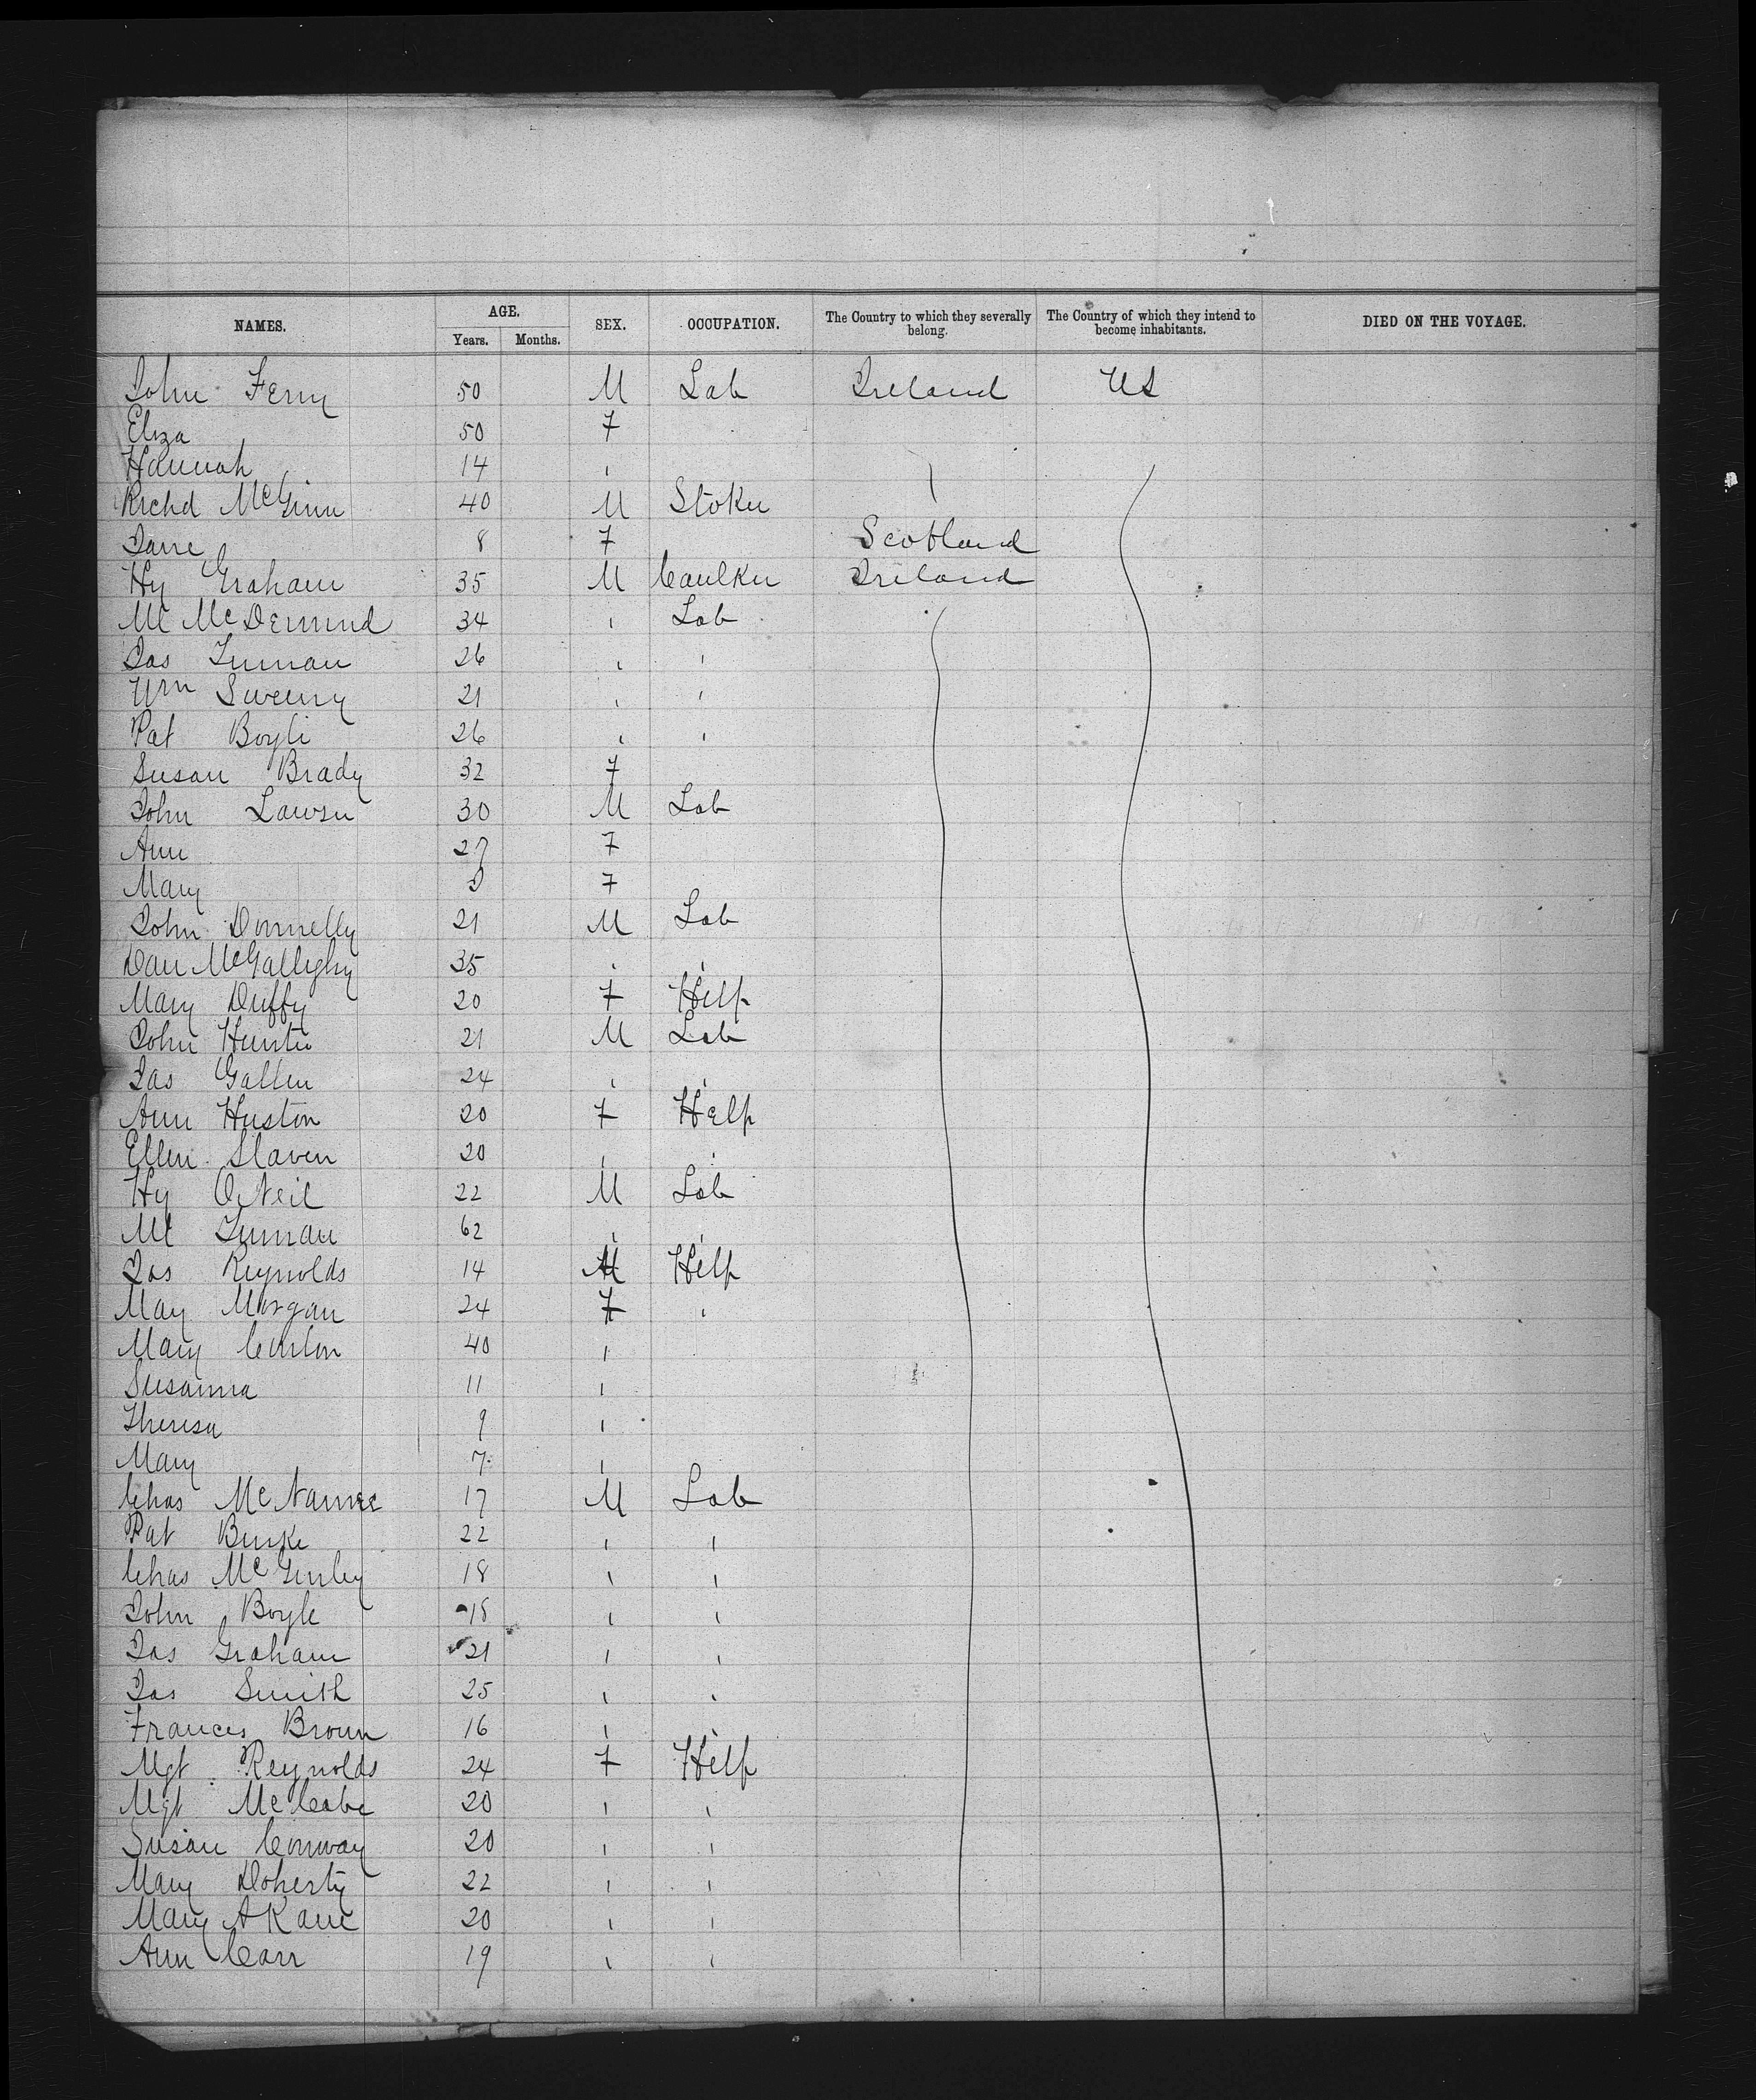 NAMES. AGE. SEX. OCCUPATION. The Country to which they severally belong. The Country of which they intend to become inhabitants. DIED ON THE VOYAGE.
Years. Months.
John Ferry 50 M Lab Ireland US
Eliza 50 F
Hannah 14 "
Richd McGinn 40 M Stoker
Jane 8 F Scotland
Hy Graham 35 M Caulker Ireland
Ml McDermind 34 " Lab
Jas 26 " "
Wm Sweeny 21 " "
Pat Boyle 26 " "
Susan Brady 32 F
John Lawson 30 M Lab
Ann 27 F
Mary F
John Donnelly 21 M Lab
Dan McGallighy 35 " "
Mary Duffy 20 F Help
John Hunter 21 M Lab
Jas Gallen 24 " "
Ann Huston 20 F Help
Ellen Slaven 20 " "
Hy O'Neil 22 M Lab
Ml 62 " "
Jas Reynolds 14 M Help
May Morgan 24 F "
Mary 40 "
Susanna 11 "
Theresa 9 "
Mary 7 "
Chas McNamee 17 M Lab
Pat Burke 22 " "
Chas McGinley 18 " "
John Boyle 18 " "
Jas Graham 21 " "
Jas Smith 25 " "
Frances Brown 16 " "
Mgt Reynolds 24 F Help
Mgt McCabe 20 " "
Susan Conway 20 " "
Mary Doherty 22 " "
Mary A Kane 20 " "
Ann Carr 19 " "